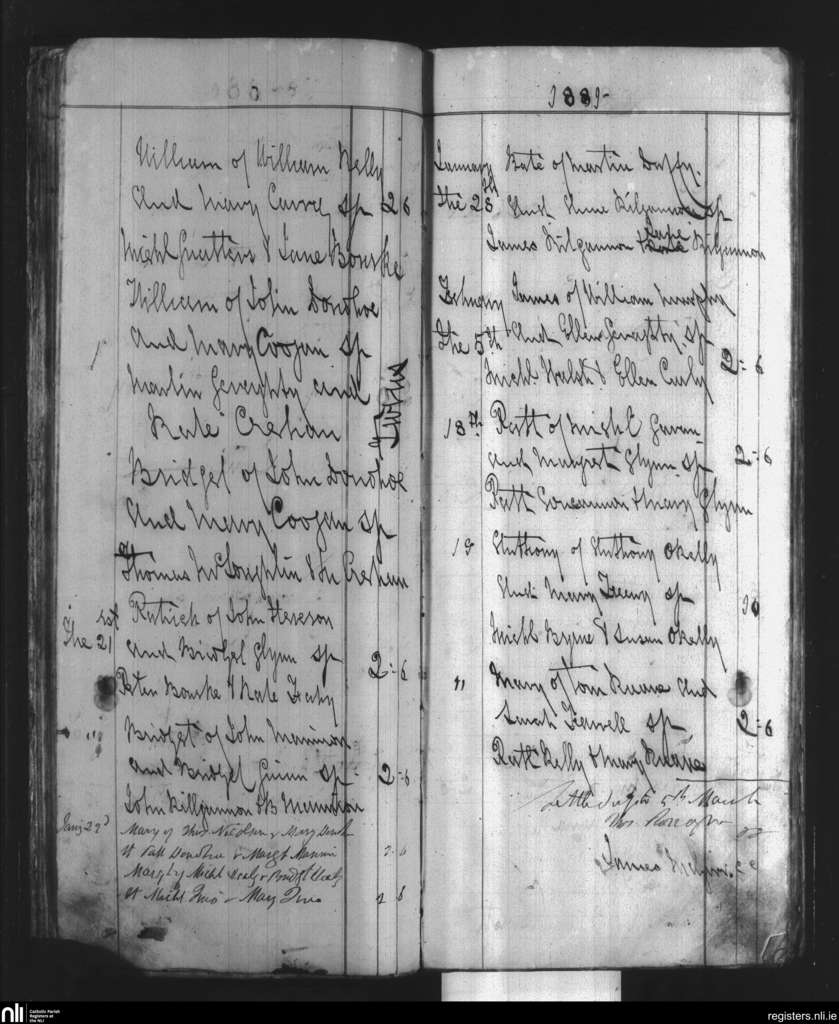 William of William Kelly
And Mary Carve sp 2 6
Michl & Jane Bourke
William of John Donohoe
and Mary Coogan sp
Martin Geraghty and
Kate Crehan
Bridget of John Donohoe
And Mary Coogan sp
Thomas McLoughlin & Crehan
Patrick of John
The 21st and Bridget Glynn sp 2=6
Peter Bourke & Kate Feahy
" Bridget of John Mannion
and Bridget sp 2=6
John Killgannon & B Mannion
Jany 22d Mary of & Mary
Patt Donohue & Margt Mannion 2 6
Margt of Michl Healy & Bridgt
Michl & Mary 2 6
1881
January Kate of Martin Duffy.
the 28th And Anne Kilgannon sp
James Kilgannon & Kilgannon
February James of William Murphy
The 5th And Ellen Geraghty sp
Michl Walsh & Ellen Curly 2=6
18th Patt of Michl Gavan
and Margret Glynn sp 2=6
Patt & Mary Glynn
19 Anthony of Anthony OKelly
And Mary Feeny sp 10
Michl Byrne & Susan OKelly
" Mary of Tom Ruane and
Sarah sp 2=6
Patt Kelly & Mary Ruane
Settled up to 5th March
James
registers.nli.ie
nli
Catholic Parish
Registers at
the NLI